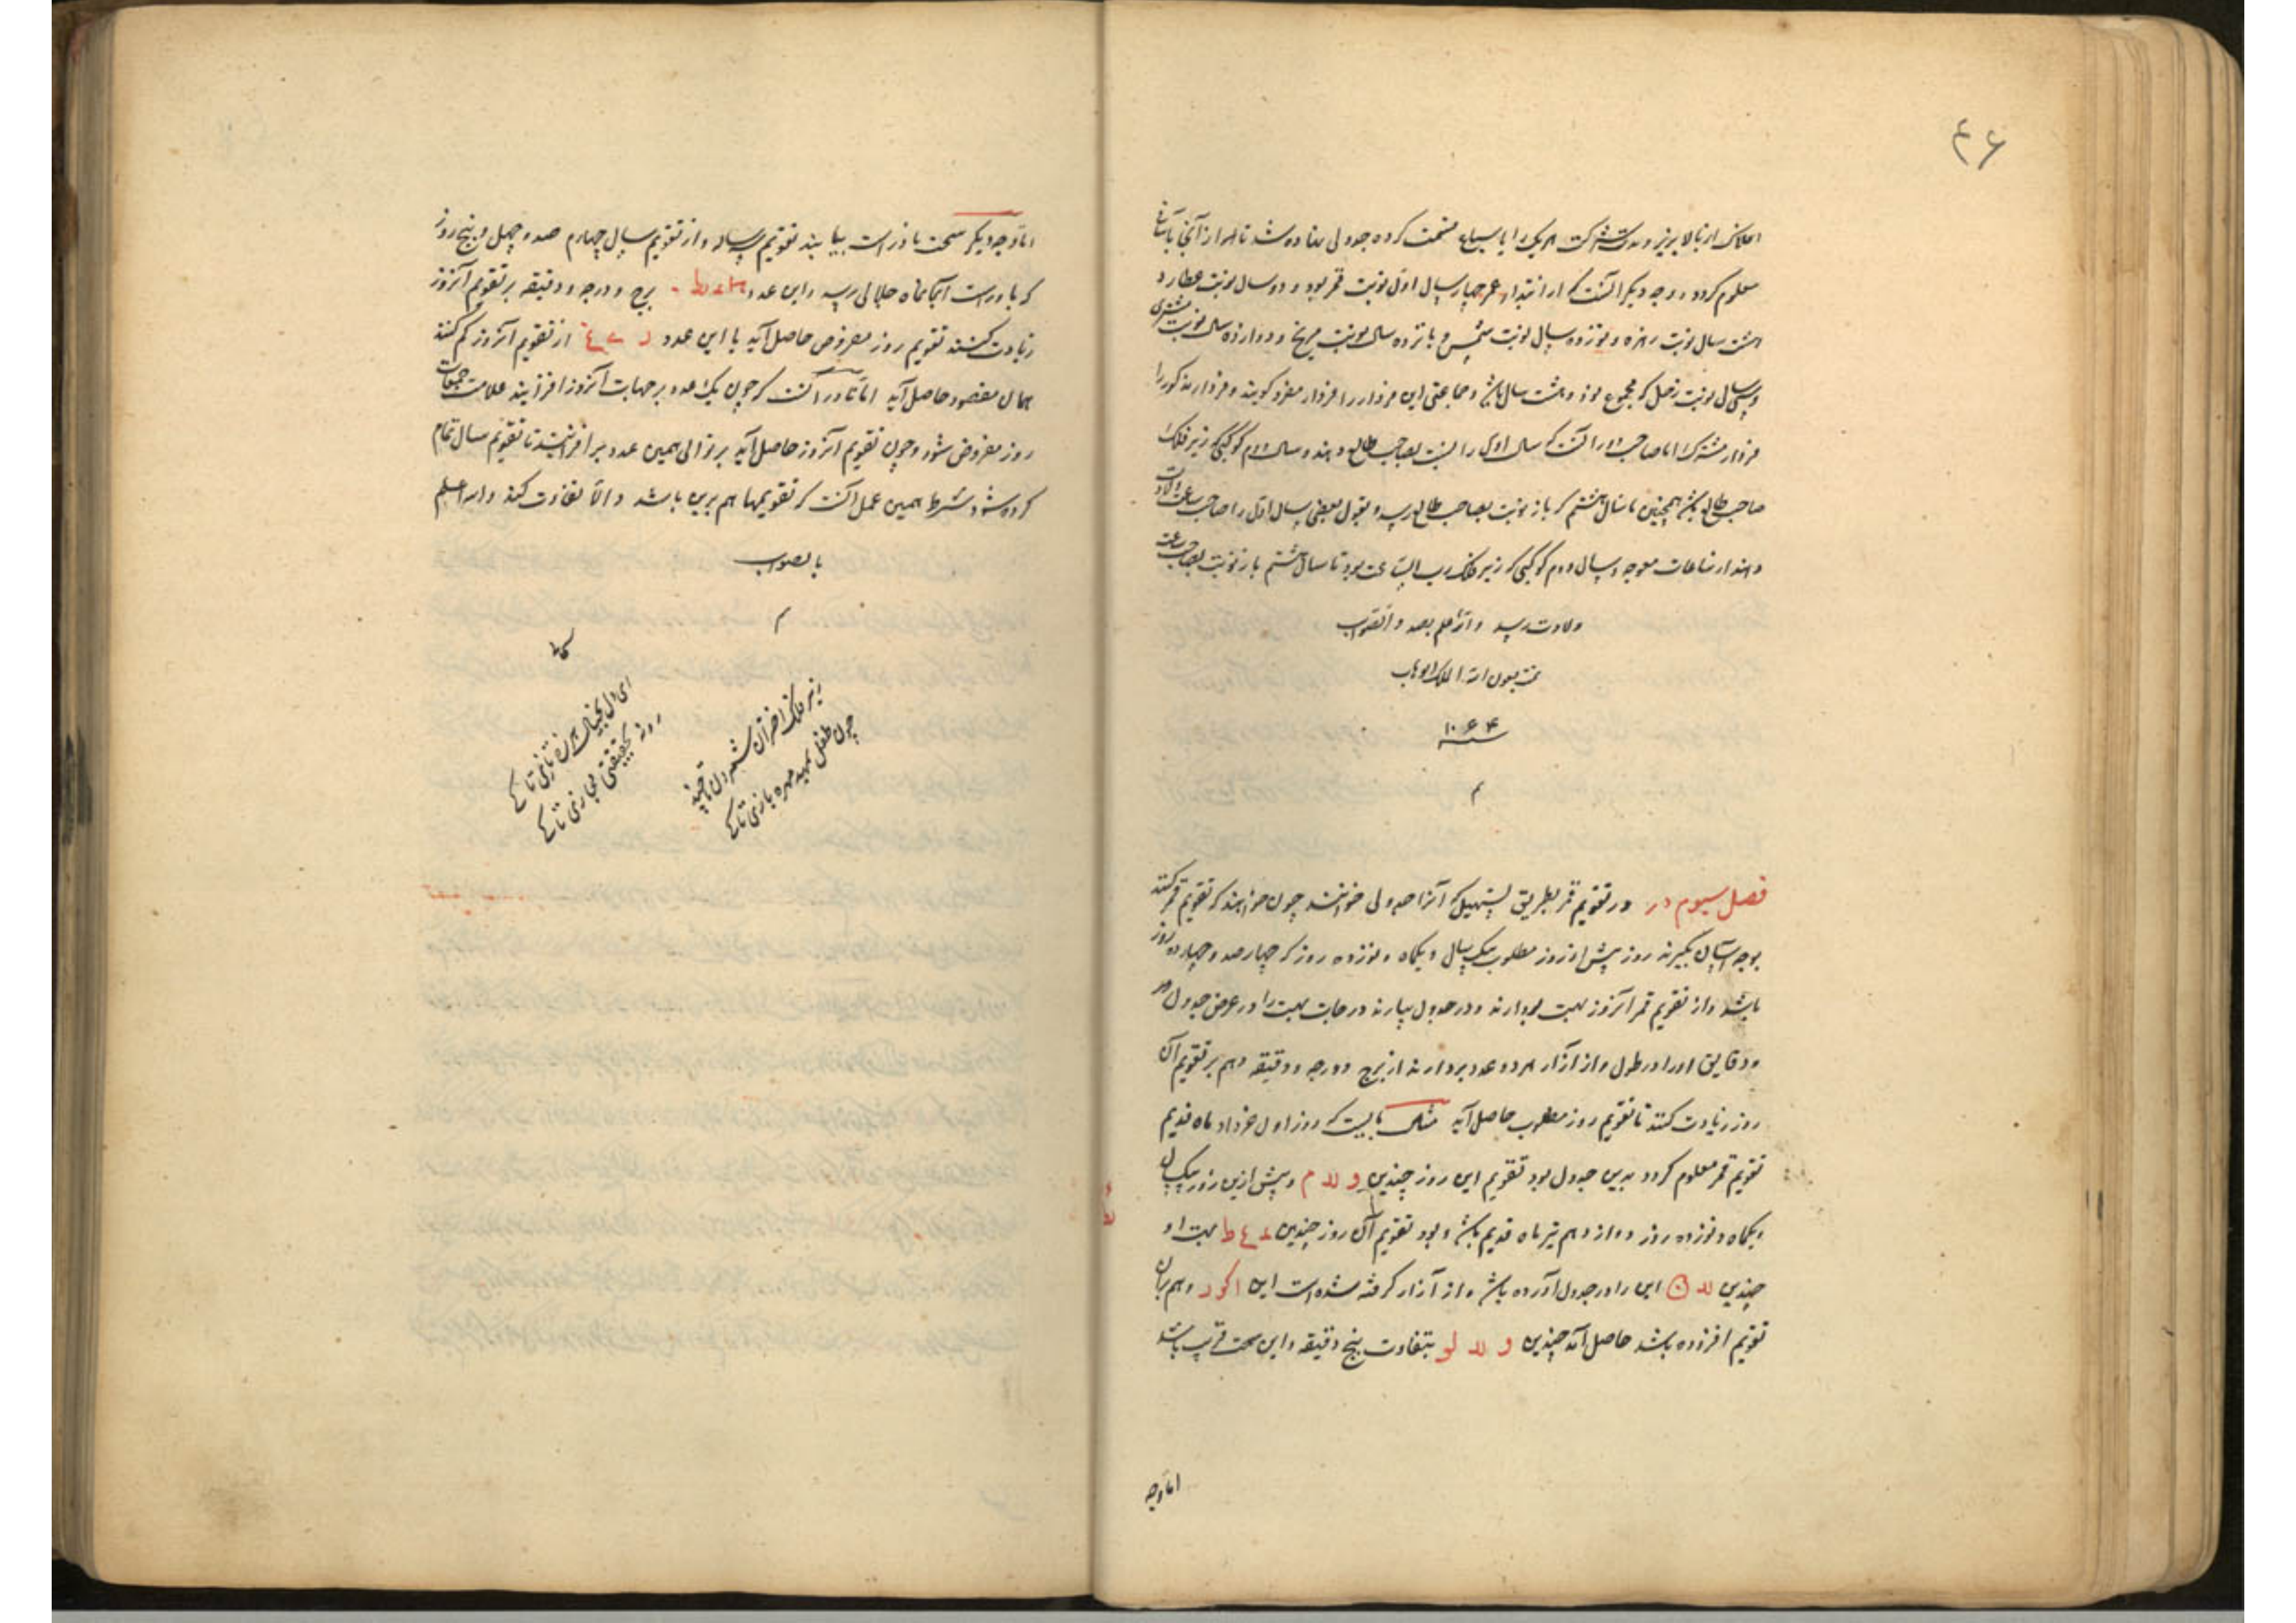 ۴۶
افلاک از بالا بزیر و مدت شرکت هر یک را با سباع قسمت کرده جدولی نهاده شد تا اسرار از آنجا بآسانی
معلوم گردد و وجه دیگر آنست که از ابتداء عمر چهار سال اول نوبت قمر بود و دو سال نوبت عطارد
هشت سال نوبت زهره و نوزده سال نوبت شمس و پانزده سال نوبت مریخ و دوازده سال نوبت مشتری
و سی سال نوبت زحل که مجموع نود و هشت سال باشد و جماعتی این فردار را فردار مفرد گویند و فردار مذکور را
فردار مشترک اما صاحب دور آنست که سال اول را نسبت بصاحب طالع دهند و سال دوم کوکبی که زیر فلک
صاحب طالع باشد همچنین تا سال هشتم که باز نوبت بصاحب طالع رسد و بقول بعضی سال اول را صاحب ساعت ولادت
دهند از ساعات معوجه و سال دوم کوکبی که زیر فلک رب الساعت بود تا سال هشتم باز نوبت بصاحب ساعت
ولادت رسد والله اعلم بعد والصواب
تمت بعون الله الملک الوهاب
سنه ۱۰۶۴
م
فصل سیوم در در تقویم قمر بطریق تسهیل که آنرا جدولی خوانند چون خواهند که تقویم قمر کنند
بوجه آسان بگیرند روز پیش از روز مطلوب بیک سال و یکماه و نوزده روز که چهار صد و چهارده روز
باشد و از تقویم قمر آنروز بهت بردارند و در جدول بیارند درجات بهت را در عرض جدول
و دقایق او را در طول و از ازآر هر دو عدد بردارند از برج و درجه و دقیقه و هم بر تقویم آن
روز زیادت کنند تا تقویم روز مطلوب حاصل آید مثالش بایست که روز اول خرداد ماه قدیم
تقویم قمر معلوم گردد بدین جدول بود تقویم این روز چندین و لد م و پیش ازین روز بیک سال
و یکماه و نوزده روز دوازدهم تیر ماه قدیم باشد و بود تقویم آن روز چندین بهت او
چندین این را در جدول آورده باشد و از آزار گرفته شده است این ا کو و هم بران
تقویم افزوده باشد حاصل آمد چندین و لد لو بتفاوت پنج دقیقه و این سخت قریب باشد
اما وجه
اما وجه دیگر سخت نادر است بیابند تقویم سه ساله و از تقویم سال چهارم صد و چهل و پنج روز
که باورست آنجا بماه جلالی رسد و این عدد برج و درجه و دقیقه بر تقویم آنروز
زیادت کنند تقویم روز مفروض حاصل آید یا این عدد از تقویم آنروز کم کنند
همان مقصود حاصل آید اما نادر آنست که چون یک عدد بر جهات آنروز افزایند علامت
روز مفروض شود و چون تقویم آنروز حاصل آید بر توالی همین عدد بر افزایند تا تقویم سال تمام
کرده شود شرط همین عمل آنست که تقویمها هم برین باشد و الا تفاوت کند والله اعلم
بالصواب
م
ای دل بخیال هرزه تازی تا کی
رو به حقیقتی مجازی تا کی
زیر فلک اختران شمردن تا چند
چون طفل بمهد مهره بازی تا کی